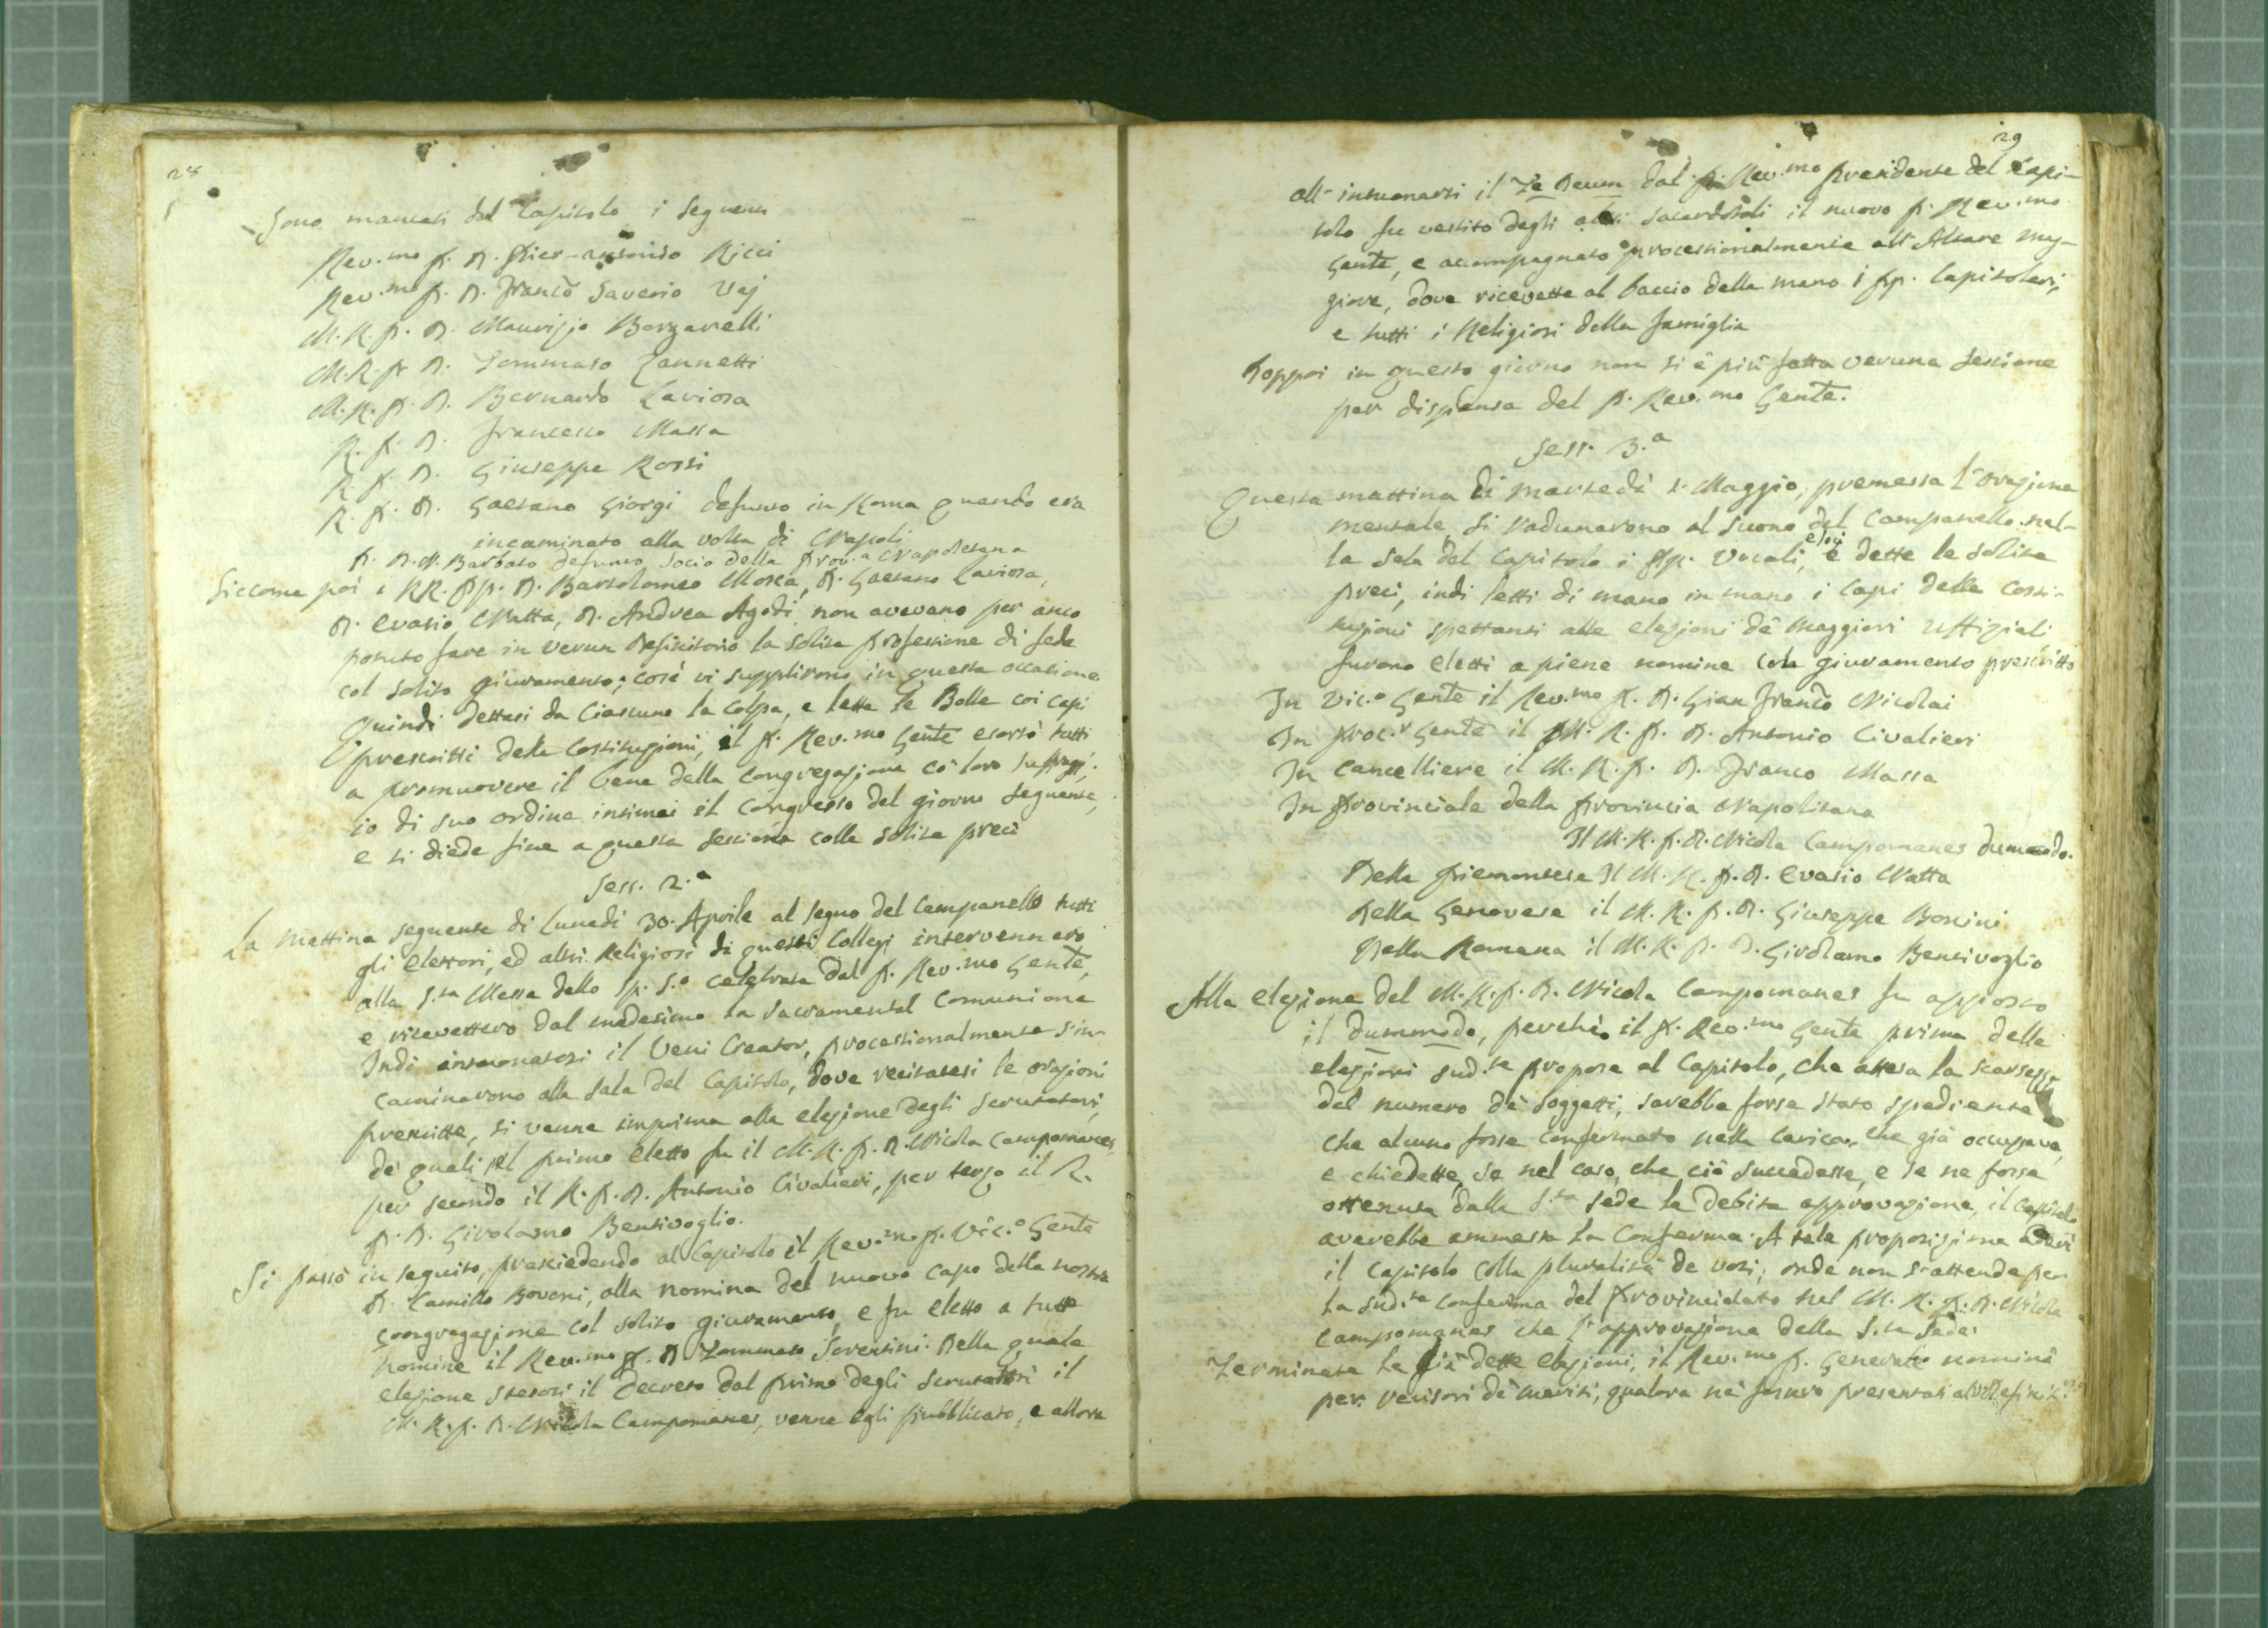 28
Sono mancati dal Capitolo i seguenti
Rev.mo P. D. Pier-antonio Ricci
Rev.mo P. D. Franco Saverio Vaj
M. R. P. D. Maurizio Barzarelli
M. R. P. D. Tommaso Zannetti
M. R. P. D. Bernardo Laviosa
R. P. D. Francesco Massa
R. P. D. Giuseppe Rossi
R. P. D. Gaetano Giorgi defunto in Roma quando era
incaminato alla volta di Napoli
P. D. N. Barbato defunto Socio della Prov.a Napoletana
Siccome poi i RR. PP. D. Bartolomeo Mosca, D. Gaetano Laviosa,
D. Evasio Natta, D. Andrea Agodi non avevano per anco
potuto fare in verun Definitorio la solita professione di fede
col solito giuramento; così vi supplirono in questa occasione
Quindi dettasi da Ciascuno la Colpa, e lette le Bolle coi Capi
prescritti delle Costituzioni, il P. Rev.mo Gente esortò tutti
a promuovere il bene della Congregazione co' loro suffragj;
io di suo ordine intimai il Congresso del giorno seguente,
e si diede fine a questa sessione colle solite preci
Sess. 2.a
La mattina seguente di Lunedì 30. Aprile al segno del Campanello tutti
gli Elettori, ed altri Religiosi di questi Collegi intervennero
alla S.ta Messa dello Sp. S.o celebrata dal P. Rev.mo Gente,
e ricevettero dal medesimo la Sacramental Comunione
Indi intuonatosi il Veni Creator, processionalmente s'in-
caminarono alla Sala del Capitolo, dove recitatesi le orazioni
prescritte, si venne imprima alla elezione degli Scrutatori,
de' quali il primo eletto fu il M. R. P. D. Nicola Campomanes,
per secondo il R. P. D. Antonio Civalieri, per terzo il R.
P. D. Girolamo Bentivoglio.
Si passò in seguito, presiedendo al Capitolo il Rev.mo P. Vic.o Gente
D. Camillo Bovoni, alla nomina del nuovo Capo della nostra
Congregazione col solito giuramento, e fu eletto a tutte
nomine il Rev.mo P. D. Tommaso Sorentini. Della quale
elezione stesosi il Decreto dal primo degli Scrutatori il
M. R. P. D. Nicola Campomanes, venne egli pubblicato, e allora
29
all'intuonarsi il Te Deum dal P. Rev.mo Presidente del Capi-
tolo fu vestito degli abiti sacerdotali il nuovo P. Rev.mo
Gente, e accompagnato processionalmente all'Altare mag-
giore, dove ricevette al baccio della mano i PP. Capitolari,
e tutti i Religiosi della famiglia
Doppoi in questo giorno non si è più fatta veruna sessione
per dispensa del P. Rev.mo Gente.
Sess. 3.a
Questa mattina di martedì 1. Maggio, premessa l'orazione
mentale, si radunarono al suono del Campanello nel-
la Sala del Capitolo i PP. Vocali, e dette le solite
preci, indi letti di mano in mano i Capi delle Costi-
tuzioni spettanti alle elezioni de' Maggiori Uffiziali
furono eletti a piene nomine col giuramento prescritto
In Vic.o Gente il Rev.mo P. D. Gian Franco Nicolai
In Proc.r Gente il M. R. P. D. Antonio Civalieri
In Cancelliere il M. R. P. D. Franco Massa
In Provinciale della Provincia Napolitana
Il M. R. P. D. Nicola Campomanes dummodo.
Della Piemontese Il M. R. P. D. Evasio Natta
Della Genovese il M. R. P. D. Giuseppe Bonini
Della Romana il M. R. P. D. Girolamo Bentivoglio
Alla elezione del M. R. P. D. Nicola Campomanes fu apposto
il dummodo, perchè il P. Rev.mo Gente prima delle
elezioni sud.te propose al Capitolo, che attesa la scarsezza
del numero de' Soggetti, sarebbe forse stato spediente
che alcuno fosse confermato nella carica, che già occupava,
e chiedette, se nel caso, che ciò succedesse, e se ne fosse
ottenuta dalla S.ta Sede la debita approvazione, il Capitolo
averebbe ammessa la Conferma. A tale proposizione aderì
il Capitolo colla pluralità de voti, onde non s'attende per
la sud.ta conferma del Provincialato nel M. R. P. D. Nicola
Campomanes che l'approvazione della S.ta Sede.
Terminate le già dette elezioni, il Rev.mo P. Generale nominò
per revisori de' meriti, qualora ne fossero presentati al